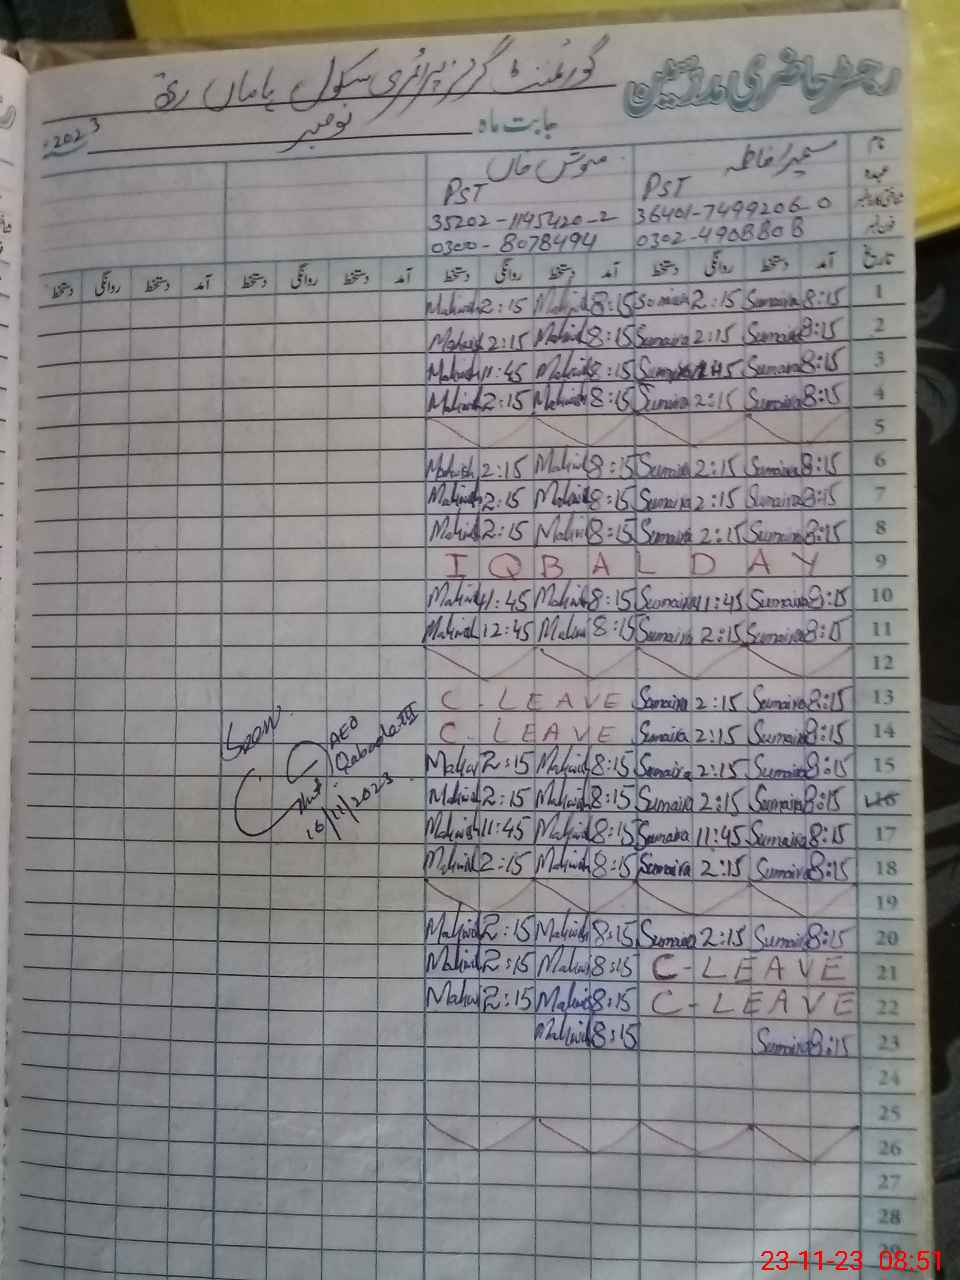 رجسٹر حاضری مدرسین
گورنمنٹ گرلز پرائمری سکول
بابت ماہ نومبر 2023
نام سمیرا فاطمہ مہوش خاں
عہدہ PST PST
شناختی کارڈ نمبر 36401-7499206-0 35202-1145420-2
فون نمبر 0302-4908808 0300-8078494
تاریخ آمد دستخط روانگی دستخط آمد دستخط روانگی دستخط آمد دستخط روانگی دستخط آمد دستخط روانگی دستخط
1 8:15 Sumaira 2:15 Sumaira 8:15 Mahwish 2:15 Mahwish
2 8:15 Sumaira 2:15 Sumaira 8:15 Mahwish 2:15 Mahwish
3 8:15 Sumaira Sumaira 8:15 Mahwish 11:45 Mahwish
4 8:15 Sumaira 2:15 Sumaira 8:15 Mahwish 2:15 Mahwish
5
6 8:15 Sumaira 2:15 Sumaira 8:15 Mahwish 2:15 Mahwish
7 8:15 Sumaira 2:15 Sumaira 8:15 Mahwish 2:15 Mahwish
8 8:15 Sumaira 2:15 Sumaira 8:15 Mahwish 2:15 Mahwish
9 IQBAL DAY
10 8:15 Sumaira 11:45 Sumaira 8:15 Mahwish 11:45 Mahwish
11 8:15 Sumaira 2:15 Sumaira 8:15 Mahwish 12:45 Mahwish
12
13 8:15 Sumaira 2:15 Sumaira C-LEAVE
14 8:15 Sumaira 2:15 Sumaira C-LEAVE
15 8:15 Sumaira 2:15 Sumaira 8:15 Mahwish 2:15 Mahwish
16 8:15 Sumaira 2:15 Sumaira 8:15 Mahwish 2:15 Mahwish
17 8:15 Sumaira 11:45 Sumaira 8:15 Mahwish 11:45 Mahwish
18 8:15 Sumaira 2:15 Sumaira 8:15 Mahwish 2:15 Mahwish
19
20 8:15 Sumaira 2:15 Sumaira 8:15 Mahwish 2:15 Mahwish
21 C-LEAVE 8:15 Mahwish 2:15 Mahwish
22 C-LEAVE 8:15 Mahwish 2:15 Mahwish
23 8:15 Sumaira 8:15 Mahwish
24
25
26
27
28
29
Seen
AEO
16/11/2023
23-11-23 08:51